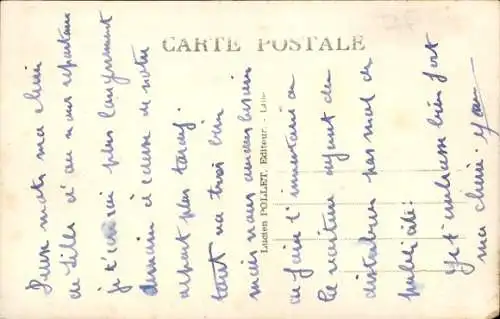 CARTE POSTALE
Lucien POLLET, Editeur - Lille
Deux mots ma chérie
de Lille d'où nous repartons
je t'écrirai plus longuement
demain à cause de notre
départ plus tard.
tout va très bien
mais nous avons besoin
de faire l'inventaire de
la voiture ayant
distribué pas mal de
publicité.
Je t'embrasse bien fort
ma chérie